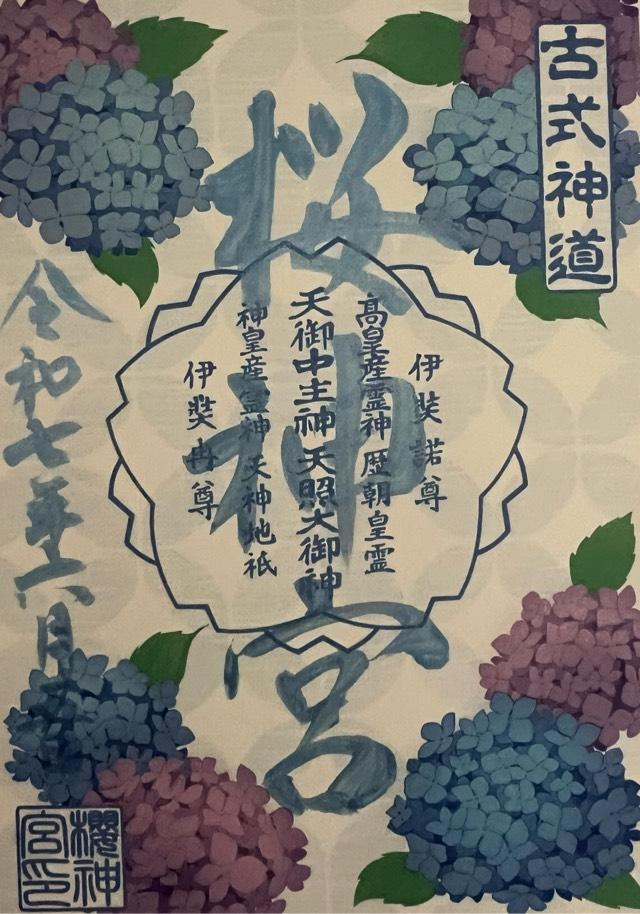 古式神道
桜神宮
伊弉諾尊
高皇産霊神 歴朝皇霊
天御中主神 天照大御神
神皇産霊神 天神地祇
伊弉冉尊
令和七年六月
櫻神宮印